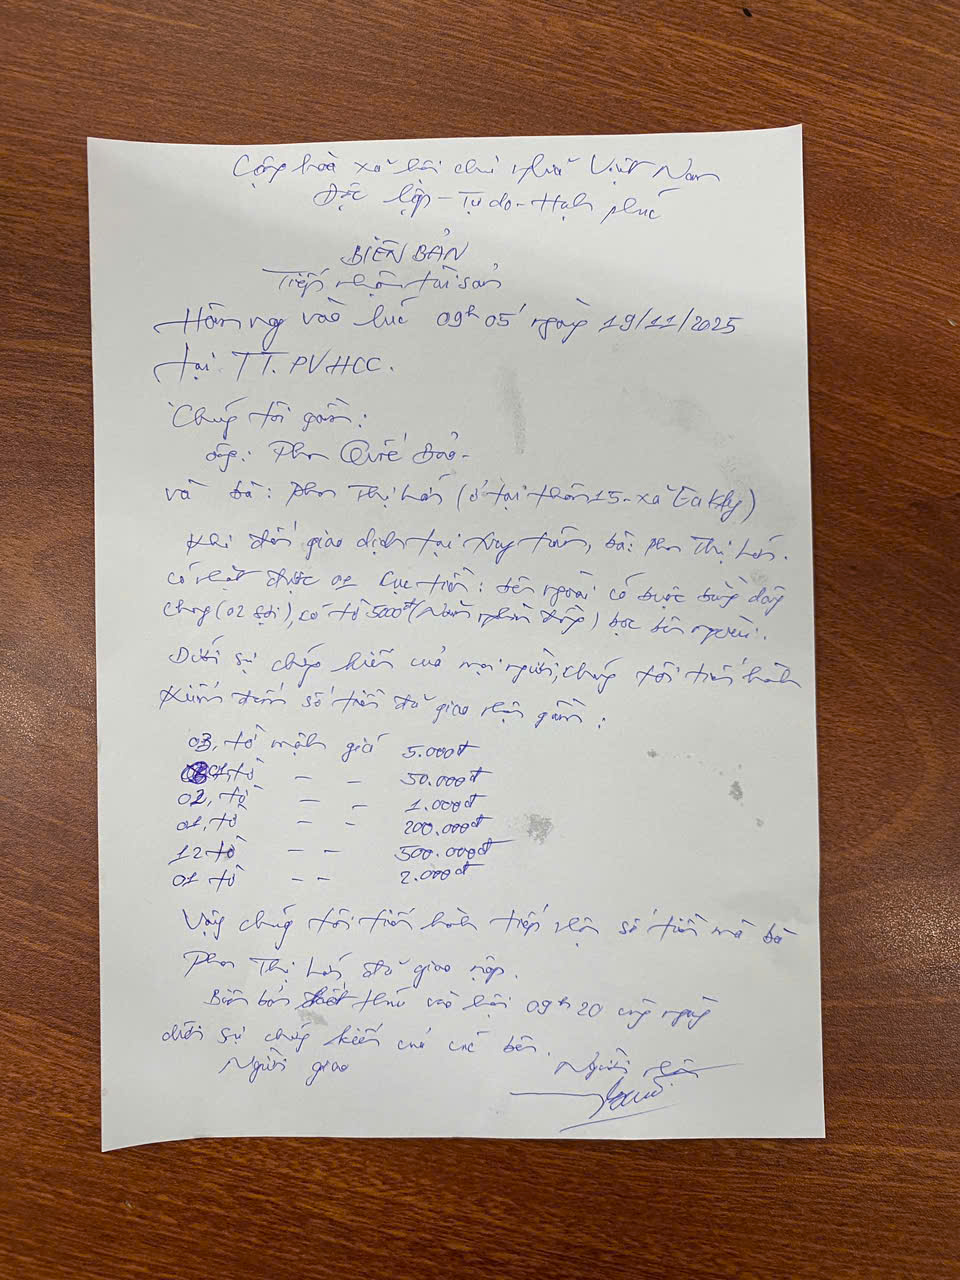 Cộng hoà xã hội chủ nghĩa Việt Nam
Độc lập - Tự do - Hạnh phúc
BIÊN BẢN
Tiếp nhận tài sản
Hôm nay vào lúc 09h05' ngày 19/11/2025
tại TT.PVHCC.
Chúng tôi gồm:
ông: Phan Quốc Bảo -
và bà: Phan Thị (ở tại thôn 15 - xã Ea Kly)
Khi đến giao dịch tại trung tâm, bà: Phan Thị
có nhặt được 01 cục tiền: bên ngoài có buộc bằng dây
thung (02 sợi), có tờ 5000đ (Năm nghìn đồng) bọc bên ngoài.
Dưới sự chứng kiến của mọi người, chúng tôi tiến hành
kiểm đếm số tiền đã giao nhận gồm:
03, tờ mệnh giá 5.000đ
01, tờ — — 50.000đ
02, tờ — — 1.000đ
01, tờ — — 200.000đ
12 tờ — — 500.000đ
01 tờ — — 2.000đ
Vậy chúng tôi tiến hành tiếp nhận số tiền mà bà
Phan Thị đã giao nộp.
Biên bản kết thúc vào hồi 09h20 cùng ngày
dưới sự chứng kiến của các bên.
Người giao
Người nhận